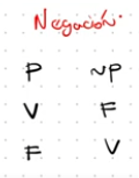 Negación.
P ~P
V F
F V